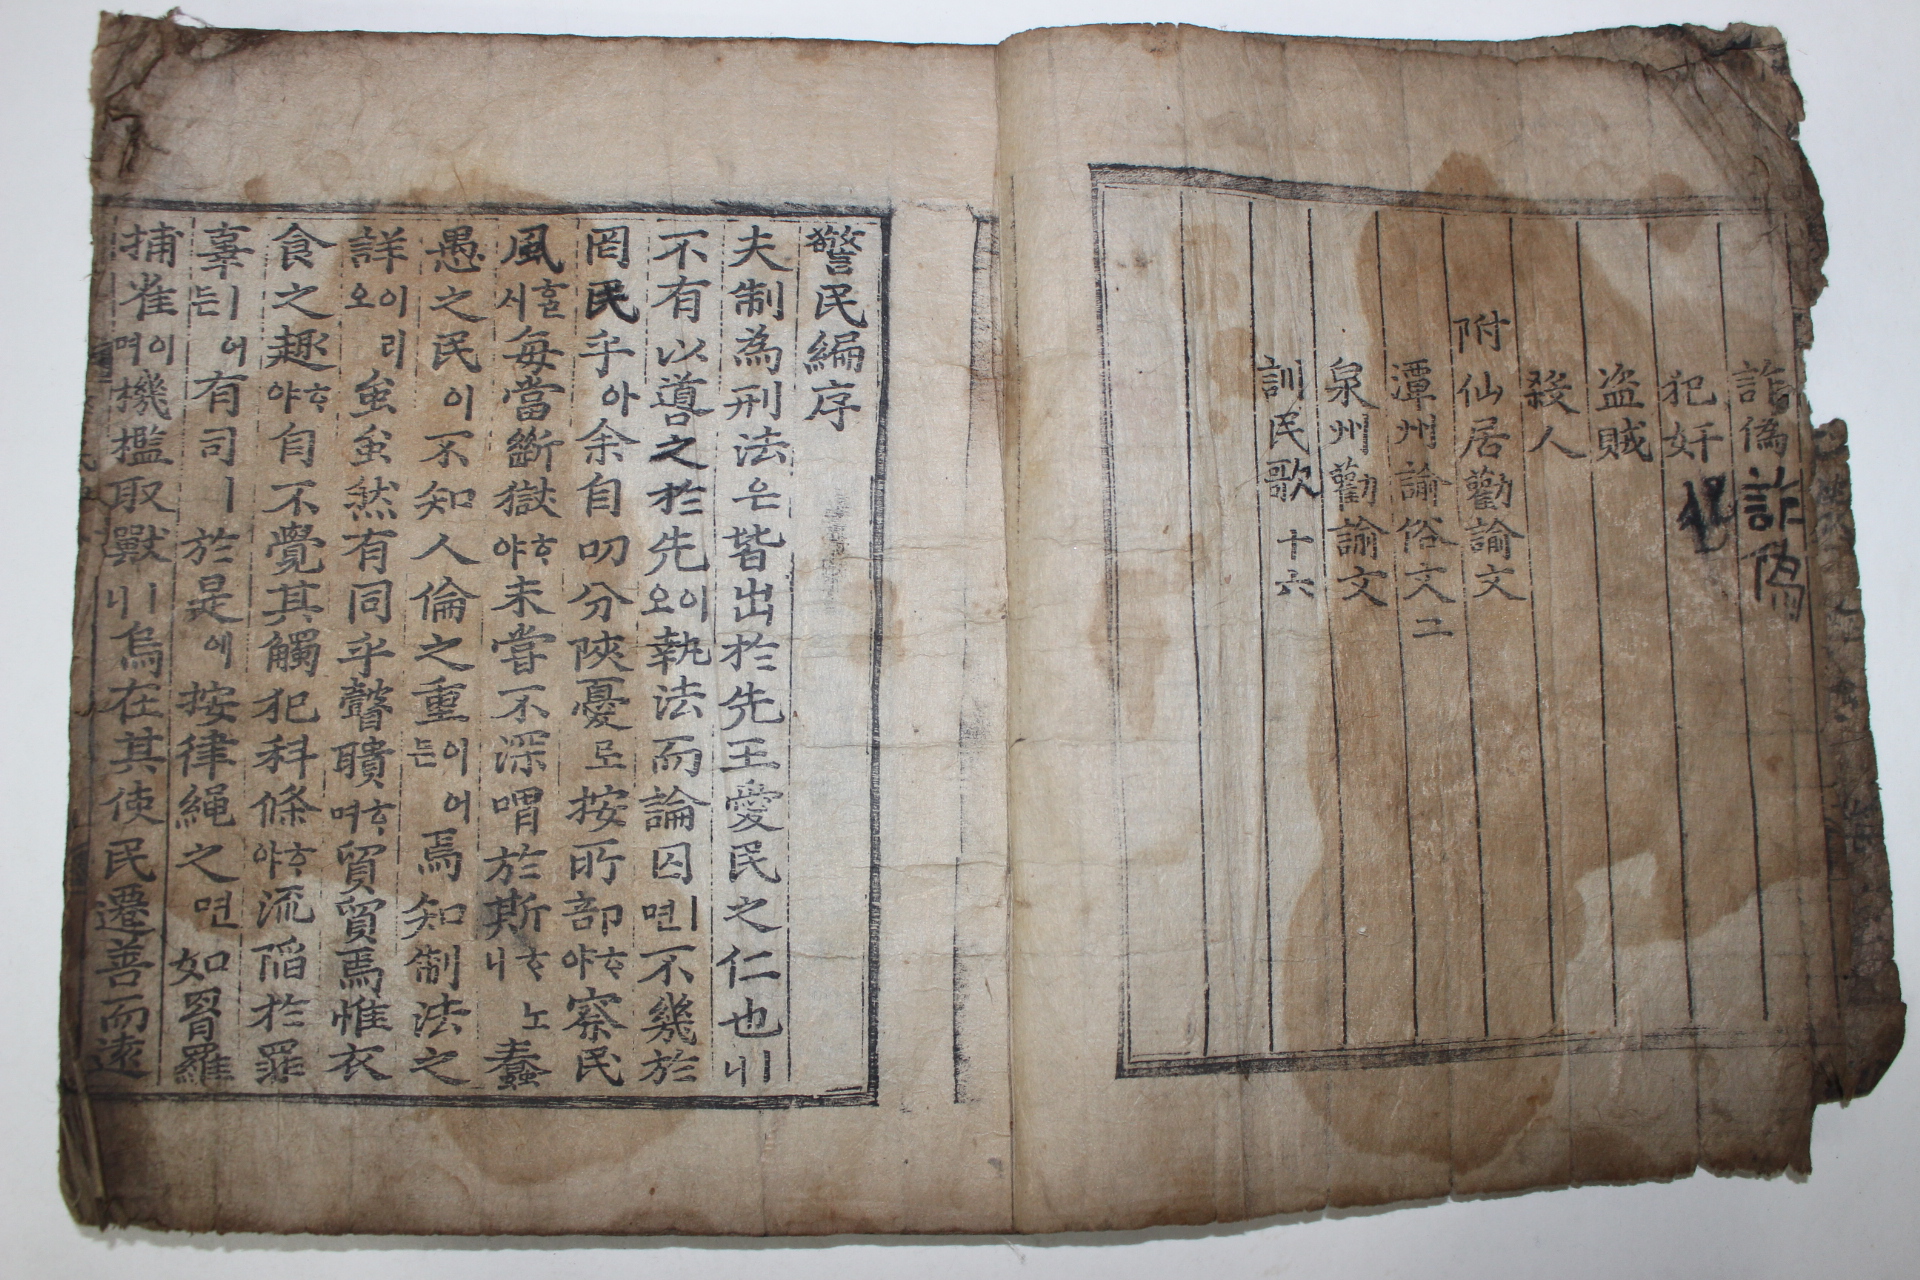 詐僞詐僞
犯奸
盗賊
殺人
附仙居勸諭文
潭州諭俗文二
泉州勸諭文
訓民歌十六
警民編序
夫制為刑法은皆出於先王愛民之仁也ㅣ니
不有以導之於先이오執法而論囚ㅣ면不幾於
罔民乎아余自叨分陝憂로按所部ᄒᆞ야察民
風ᄒᆞᆯ시每當斷獄ᄒᆞ야未嘗不深喟於斯ᄒᆞ노니蠢
愚之民이不知人倫之重이어든焉知制法之
詳이리오蚩蚩然有同乎瞽聵ᄒᆞ여貿貿焉惟衣
食之趣ᄒᆞ야自不覺其觸犯科條ᄒᆞ야流陷於罪
辜ㅣ어든有司ㅣ於是에按律繩之면如罥羅
捕雀이며機檻取獸ㅣ니烏在其使民遷善而遠